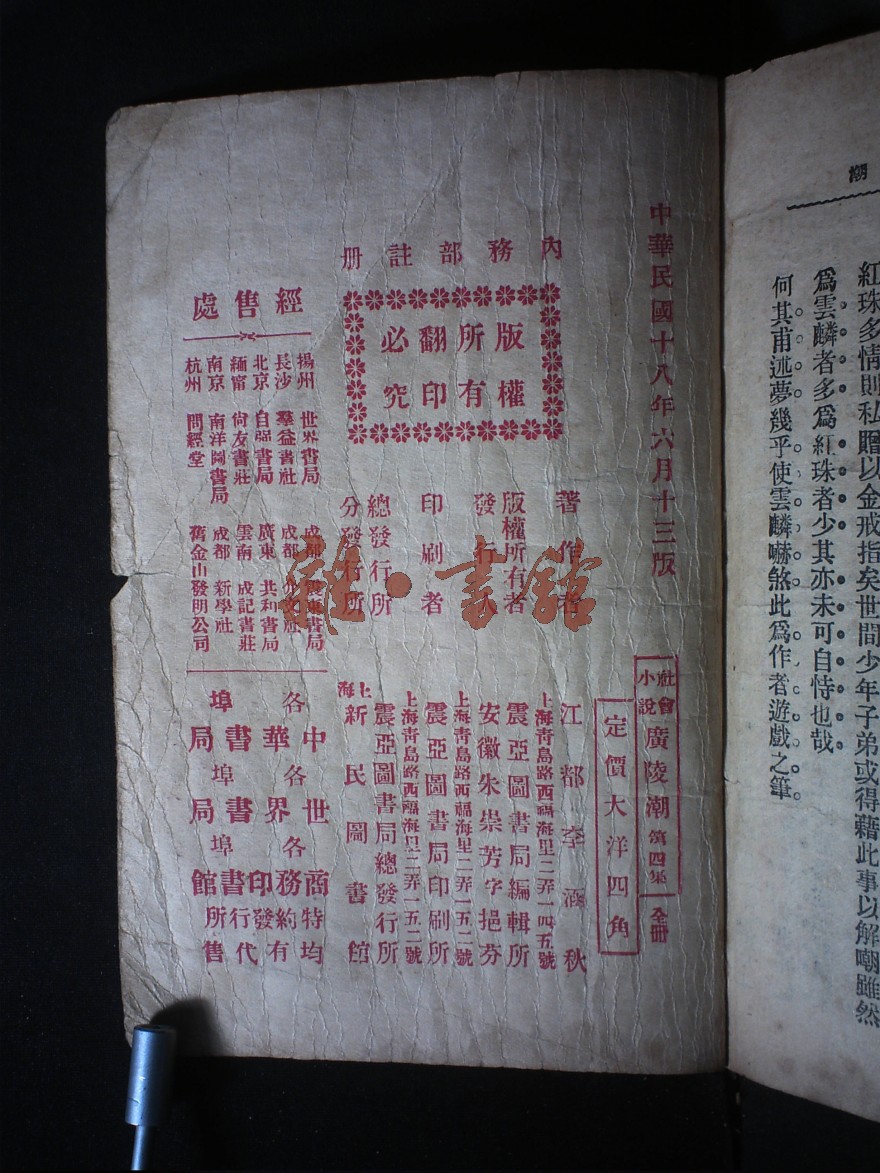 潮
紅珠多情則私贈以金戒指矣世間少年子弟或得藉此事以解嘲雖然
爲雲麟者多爲紅珠者少其亦未可自恃也哉
何其甫述夢幾乎使雲麟嚇煞此爲作者遊戲之筆
中華民國十八年六月十三版
社會小說
廣陵潮
第四集
全冊
定價大洋四角
內務部註册
版權
所有
翻印
必究
著作者
江都李涵秋
版權所有者
上海青島路西福海里二弄一四五號
震亞圖書局編輯所
發行人
安徽朱崇芳字挹芬
印刷者
上海青島路西福海里二弄一五二號
震亞圖書局印刷所
總發行所
上海青島路西福海里二弄一五二號
震亞圖書局總發行所
分發行所
上海
新民圖書館
經售處
揚州 世界書局
長沙 羣益書社
北京 自强書局
緬甯 尙友書莊
南京 南洋圖書局
杭州 問經堂
成都 震東書局
成都
廣東 共和書局
雲南 成記書莊
成都 新學社
舊金山發明公司
各埠中華書局
各埠世界書局
各埠商務印書館
特約發行所
均有代售
雜·書館